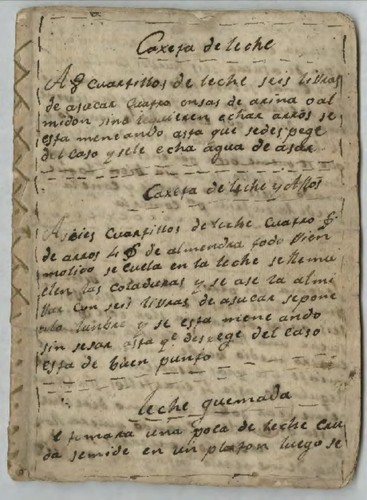 Caxeta de leche
A 8 cuartillos de leche seis livras
de asucar quatro onsas de arina o al
midon sino quieren echar arros se
esta meneando asta que se despege
del caso y sele echa agua de asar
Caxeta de leche y arros
A dies cuartillos de leche cuatro
de arros 4 de almendra todo vien
molido se cuela en la leche se
en las coladuras y se ase la almi
var con seis livras de asucar se pone
a la lumbre y se esta meneando
sin sesar asta q.e despege del caso
esta de buen punto
leche quemada
se tomara una poca de leche cru
da semide en un platon luego se